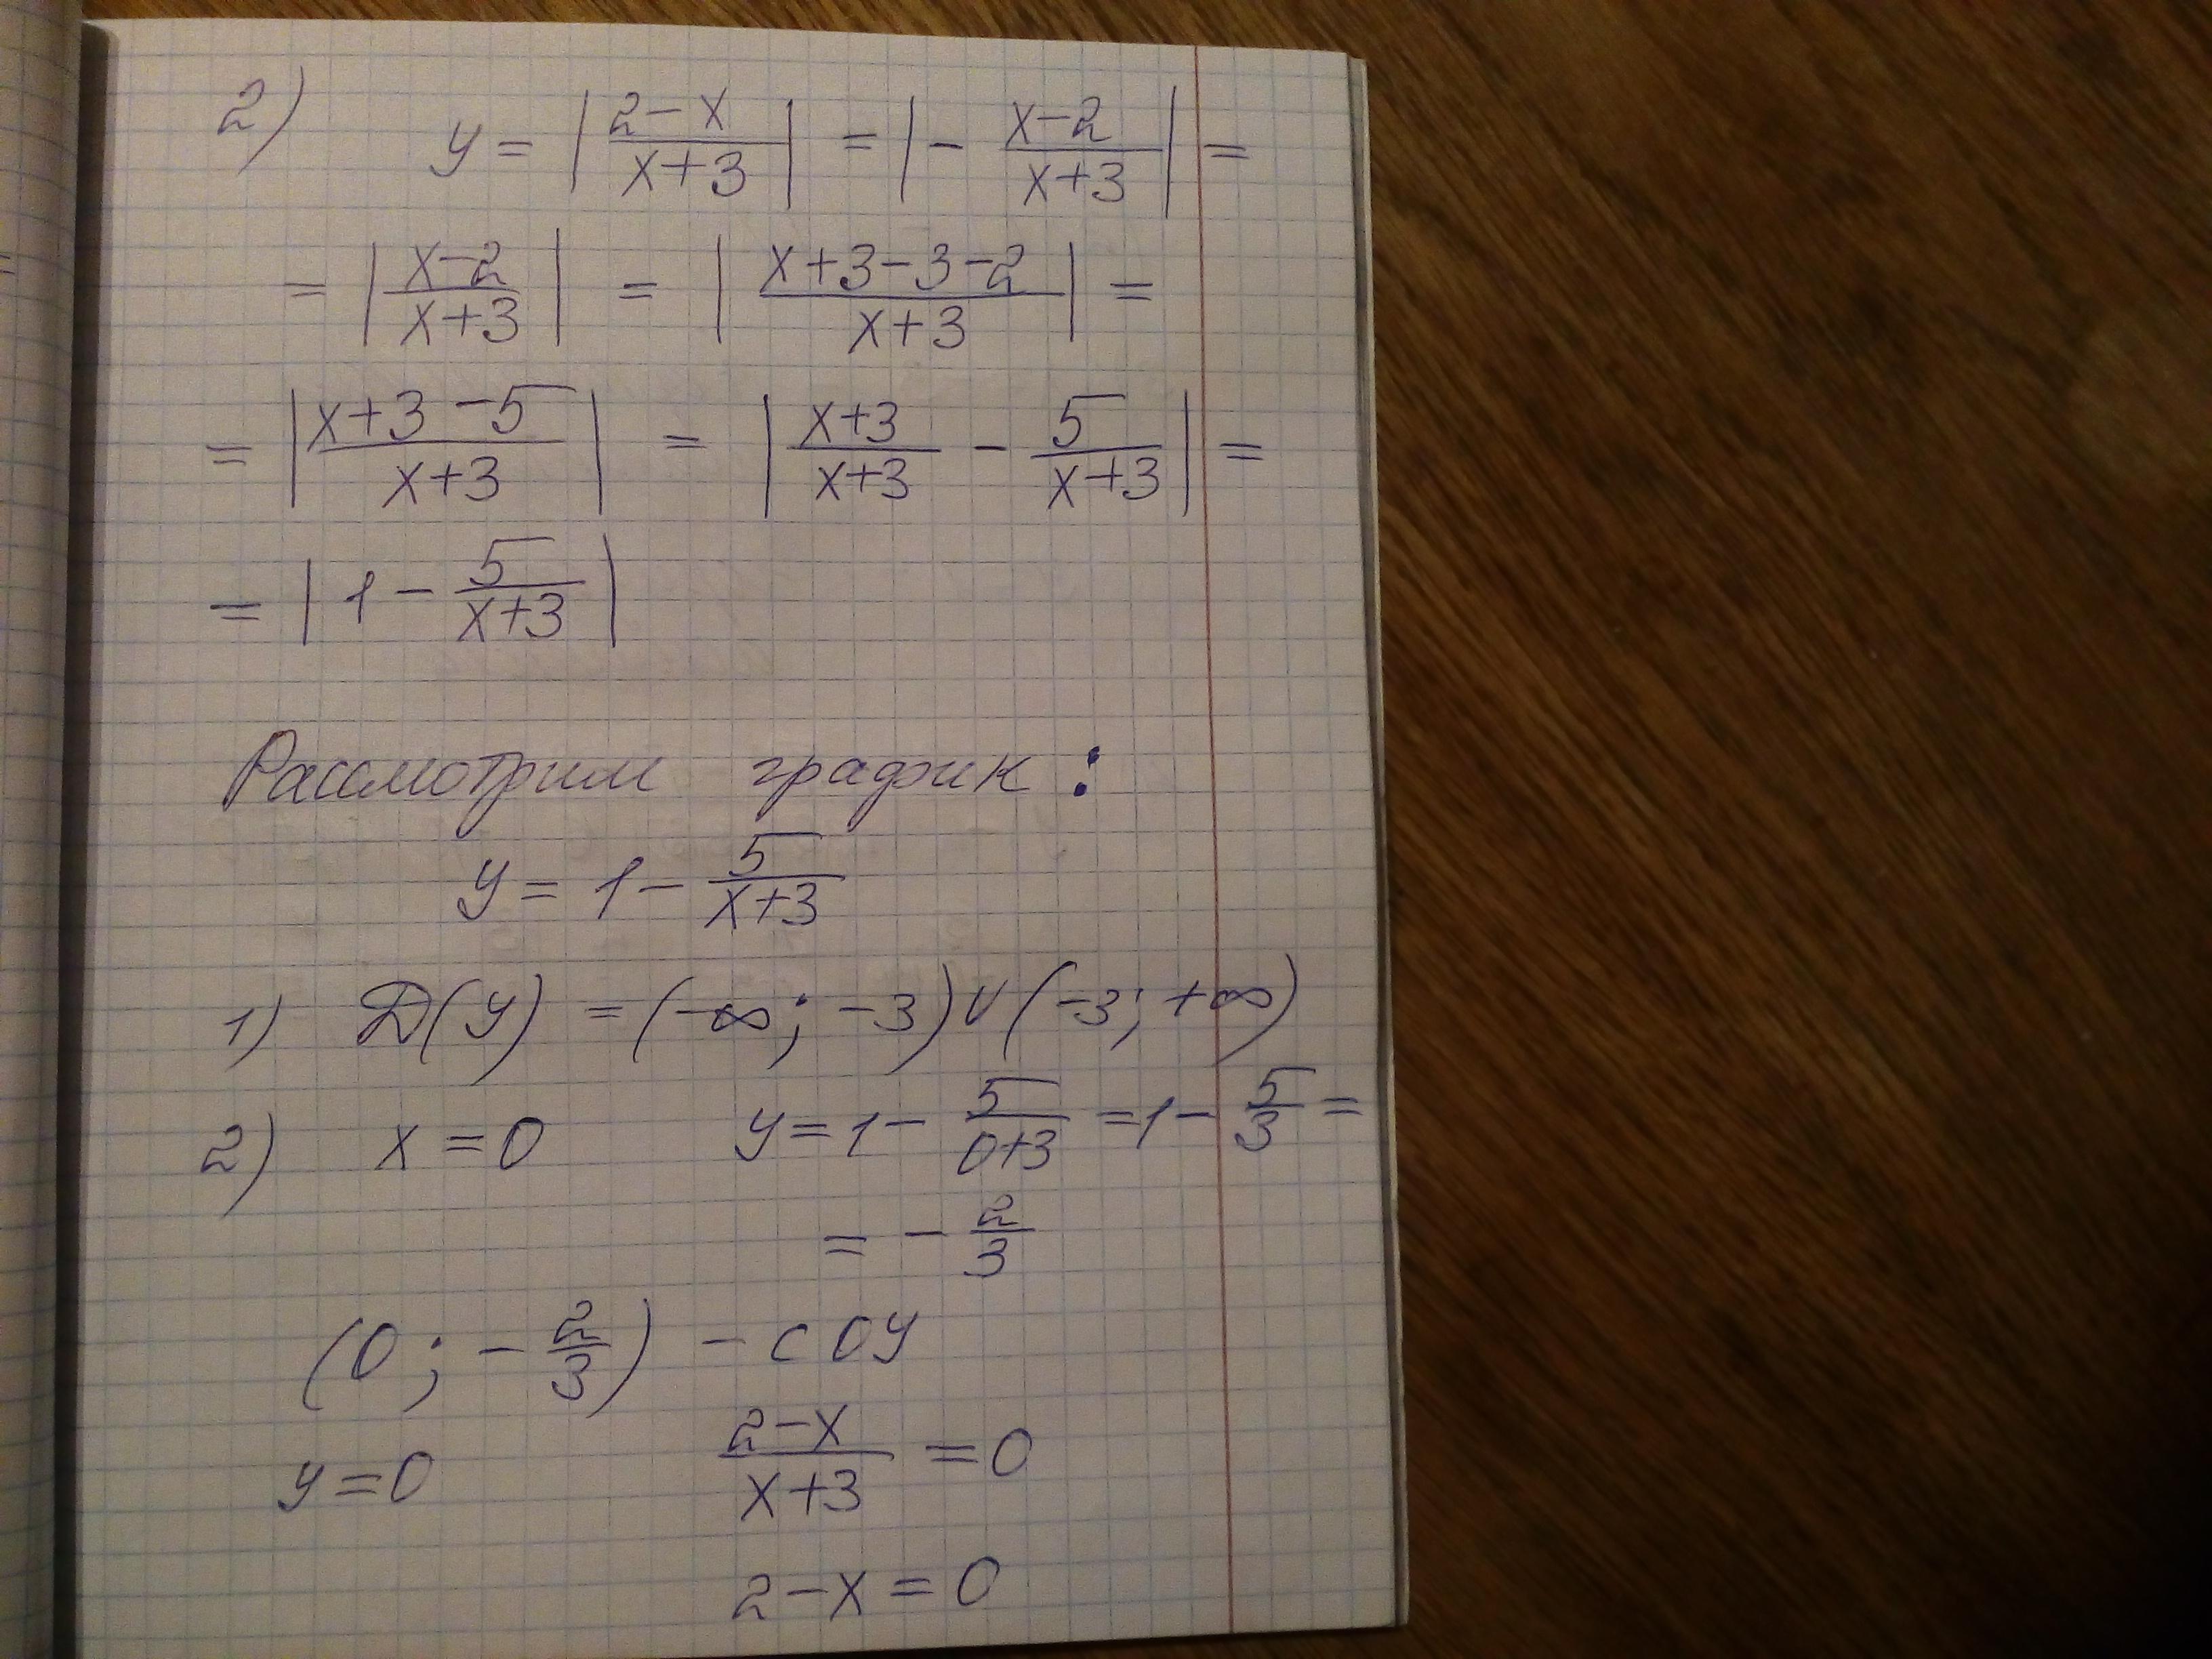 2) y = |(2-x)/(x+3)| = |- (x-2)/(x+3)| =
= |(x-2)/(x+3)| = |(x+3-3-2)/(x+3)| =
= |(x+3-5)/(x+3)| = |(x+3)/(x+3) - 5/(x+3)| =
= |1 - 5/(x+3)|
Рассмотрим график:
y = 1 - 5/(x+3)
1) D(y) = (-∞; -3) ∪ (-3; +∞)
2) x = 0 y = 1 - 5/(0+3) = 1 - 5/3 =
= - 2/3
(0; - 2/3) - с OY
y = 0 (2-x)/(x+3) = 0
2-x = 0